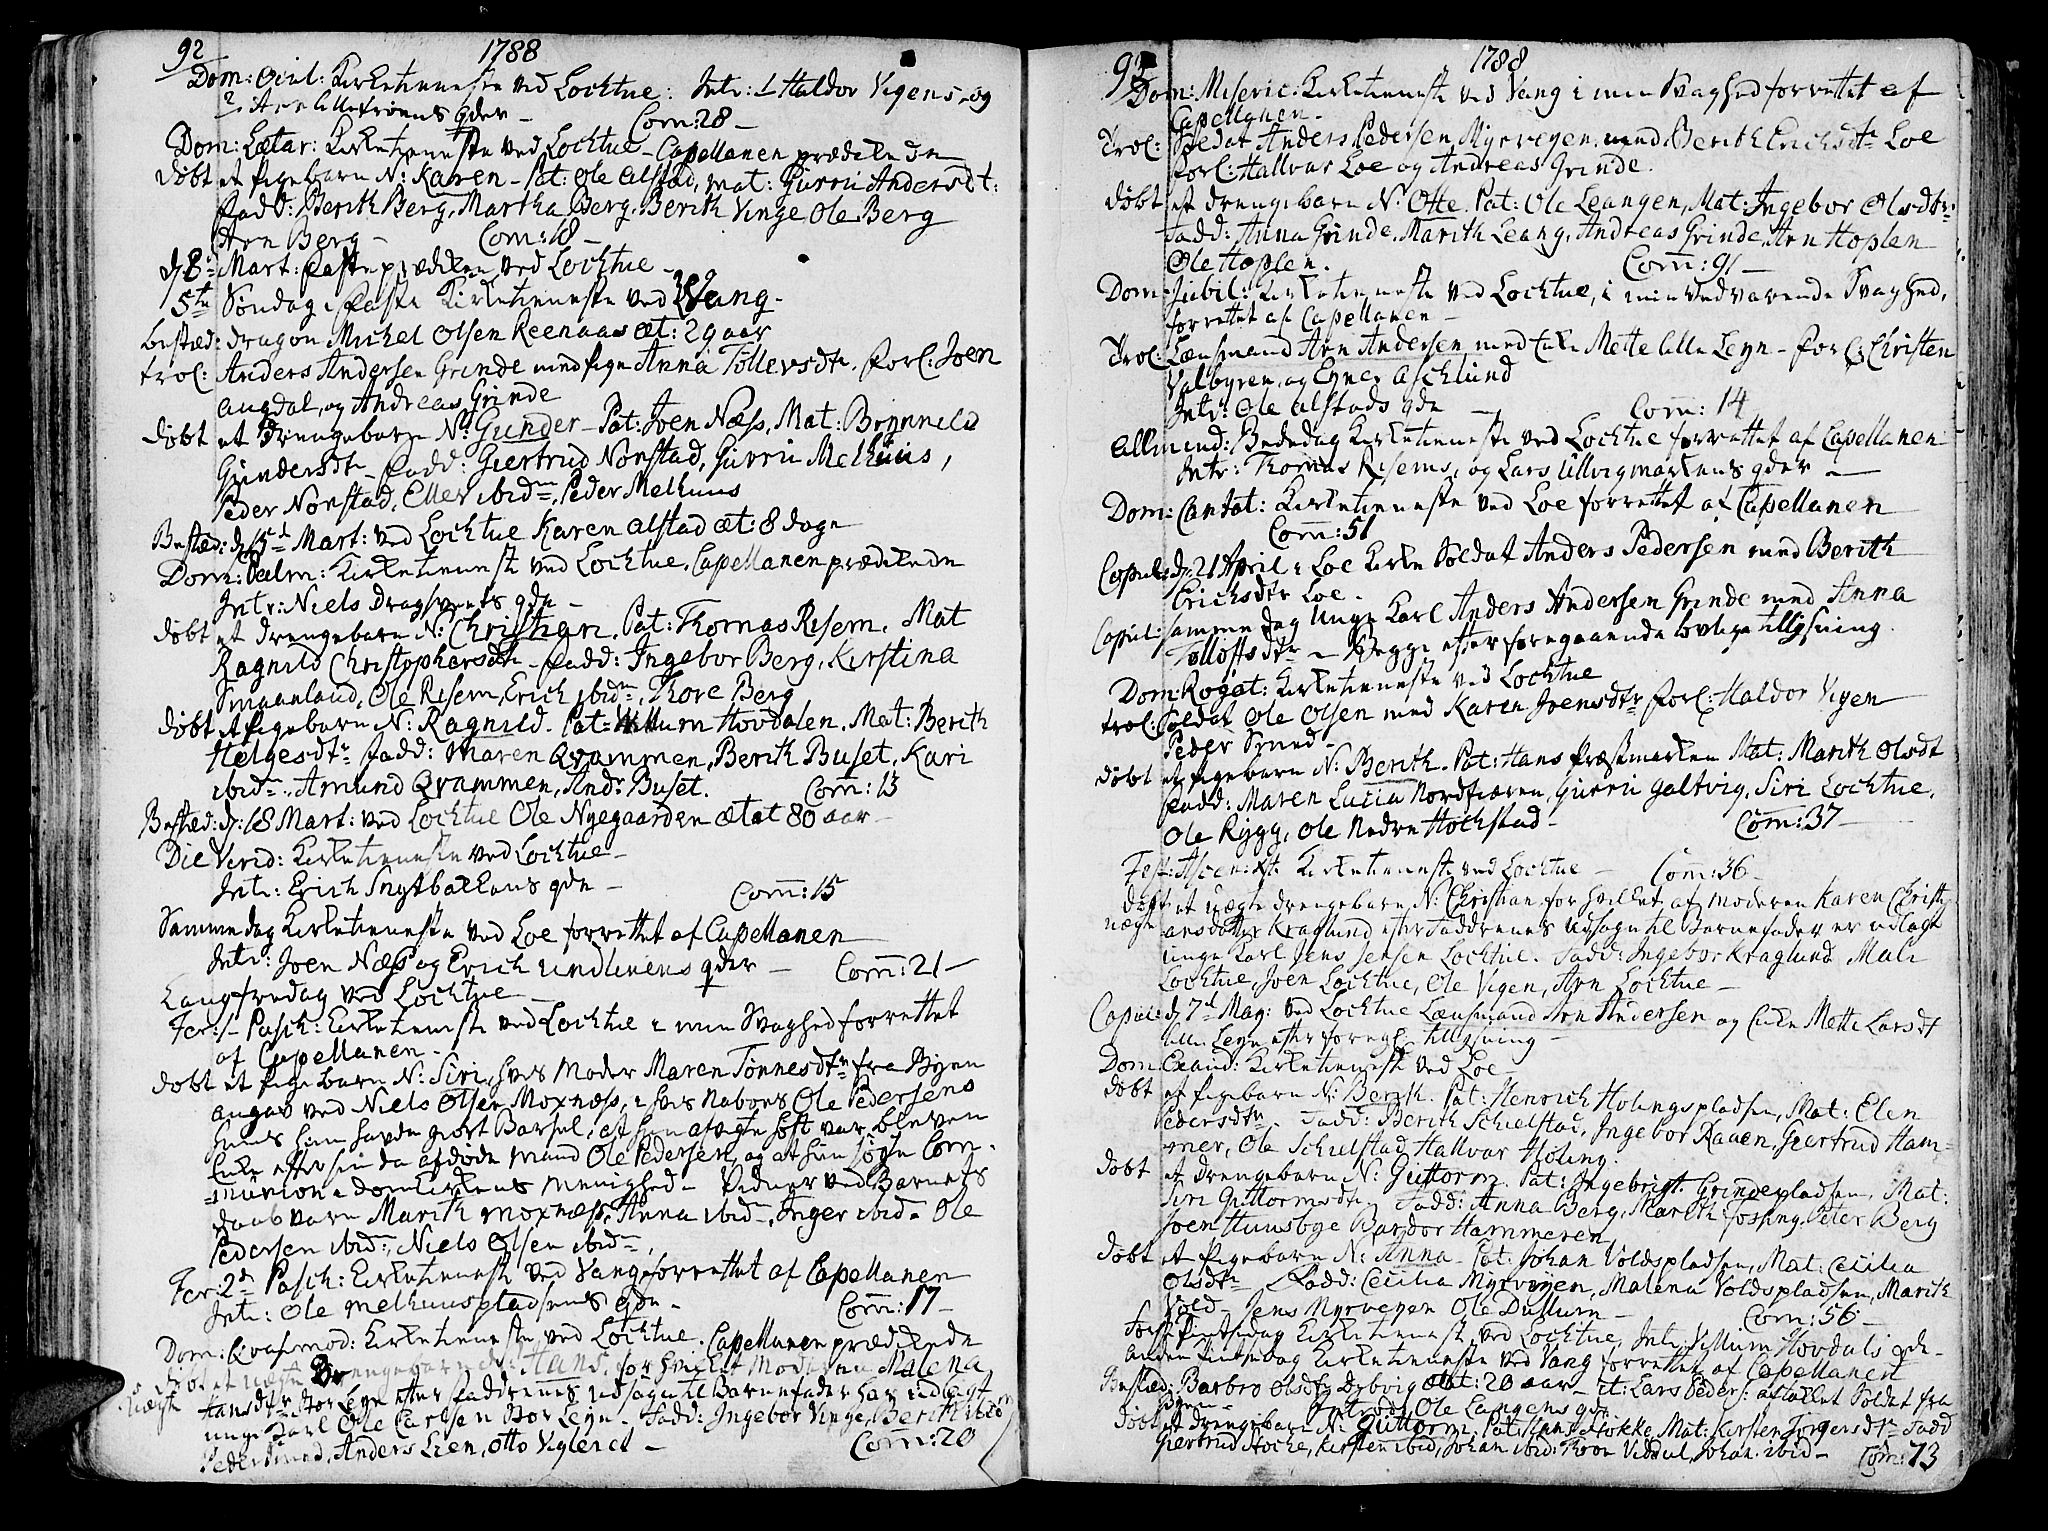 92
1788
Dom: Ocul: Kirketieneste ved Lochtue. Intr: 1 Haldor Vigens, og
qder - Com: 28 -
Dom: Lætar: Kirketieneste ved Lochtue - Capellanen prædikede
døbt et Pigebarn N: Karen - Pat: Ole Alstad, Mat: Gurru Andersdt:
fadd: Berith Berg, Martha Berg, Berith Vinge Ole Berg
Arn Berg - Com: 18 -
d: 8 Mart: faste prædiken ved Lochtue -
5te Søndag i faste Kirketieneste ved Vang -
bestæd: dragon Michel Olsen Reenaas æt: 29 aar
trol: Anders Andersen Grinde med pige Anna Tollevsdtr. forl: Joen
augdal, og Andreas Grinde
døbt et drengebarn N: Gunder - Pat: Joen Næss, Mat: Brynnild
Gundersdtr - fadd: Giertrud Norstad, Gurru Melhuus,
Peder Norstad, Eller ibidm, Peder Melhuus
Bestæd: d: 15d Mart: ved Lochtue Karen Alstad æt: 8 dage
Dom: Palm: Kirketieneste ved Lochtue, Capellanen prædikede
Intr: Niels Dragstvets qde -
døbt et drengebarn N: Christian. Pat: Thomas Risem. Mat
Ragnild Christophersdtr - fadd: Ingebor Berg, Kirstina
Smaanland, Ole Risem, Erich ibidm, Thore Berg
døbt et Pigebarn N: Ragnild. Pat: Willum Hovdalen. Mat: Berith
Helgesdtr fadd: Maren Qvammen, Berith Buset, Kari
ibidm, Amund Qvammen, Andr Buset. Com: 13
Bestæd: d: 18 Mart: ved Lochtue Ole Nygaarden ætat 80 aar -
Die Virid: Kirketieneste ved Lochtue -
Intr: Erich Snytbakens qde - Com: 15
Samme dag Kirketieneste ved Loe forrettet af Capellanen
Intr: Joen Næss og Erich undlinens qder - Com: 21 -
Langfredag ved Lochtue -
Fer: 1 - Pasch: Kirketieneste ved Lochtue i min Svaghed forrettet
af Capellanen -
døbt et Pigebarn N: Siri, hvis Moder Maren Tønnesdtr fra Byen
angav ved Niels Olsen Moxness, i hvis Nabous Ole Pedersens
huus hun havde giort Barsel, at hun ægte født var, bleven
Enke efter sin da afdøde Mand Ole Pedersen, og at hun søgte Com-
munion i Domkirkens Menighed - Vidner ved Barnets
daab vare Marith Moxness, Anna ibid -, Inger ibid - Ole
Pedersen ibidm, Niels Olsen ibidm,
Fer: 2d Pasch: Kirketieneste ved Vang forrettet af Capellanen
Intr: Ole Melhuuspladsens qde - Com: 17 -
Dom: Qvasimod: Kirketieneste ved Lochtue. Capellanen prædikede
døbt et uægte Drengebarn N: Hans, for hvilket Moderen Malena
Hansdtr Stor Leyn efter faddrenes udsagn til Barnefader har udlagt
unge Karl Ole Larsen Stor Leyn - fadd: Ingebor Vinge, Berith ibidm
Peder Smed, Anders Lien, Otto Viglered - Com: 20
93
1788
Dom: Miseric: Kirketieneste ved Vang i min Svaghed forrettet af
Capellanen -
Trol: Soldat Anders Pedersen Myrvegen med Berith Erichsdtr Loe
forl: Hallvar Loe og Andreas Grinde.
døbt et drengebarn N: Otte. Pat: Ole Leangen, Mat: Ingebor Olsdtr:
fadd: Anna Grinde, Marith Leang, Andreas Grinde, Arn Hoplen
Ole Hoplen. Com: 91 -
Dom: Jubil: Kirketieneste ved Lochtue, i min vedvarende Svaghed,
forrettet af Capellanen -
Trol: Lænsmand Arn Andersen med Enke Mette lille Leyn - forl: Christen
Valbyren, og Eyner Aschlund
Intr: Ole Alstads qde - Com: 14
Allmind: Bededag Kirketieneste ved Lochtue forrettet af Capellanen
Intr: Thomas Risems, og Lars Ullvigmarkens qder -
Dom: Cantat: Kirketieneste ved Loe forrettet af Capellanen
Com: 51
Copul: d: 21 April i Loe Kirke Soldat Anders Pedersen med Berith
Erichsdtr Loe -
Copul: samme dag Unge Karl Anders Andersen Grinde med Anna
Tolloffsdtr - Begge efter foregaaende lovlige tillysning.
Dom: Rogat: Kirketieneste ved Lochtue
trol: Soldat Ole Olsen med Karen Joensdtr forl: Haldor Vigen
Peder Smed -
døbt et Pigebarn N: Berith. Pat: Hans Præstmarken Mat: Marith Olsdt
fadd: Maren Lucia Nordfiæren, Gurru Galtvig, Siri Lochtue,
Ole Rygg, Ole Nedre Hochstad - Com: 37 -
Fest: Ascen: Xti Kirketieneste ved Lochtue - Com: 36 -
døbt et uægte drengebarn N: Christian, for hvilket af Moderen Karen Christi
uægte ansdatter Kraglund efter Faddrenes Udsagn til Barnefader er udlagt
unge Karl Jens Jensen Lochtue. fadd: Ingebor Kraglund Mali
Lochtue, Joen Lochtue, Ole Vigen, Arn Lochtue -
Copul: d: 7d May: ved Lochtue Lænsmand Arn Andersen og Enke Mette Larsdt
lille Leyn efter foreg: tillysning -
Dom: Exaud: Kirketieneste ved Loe -
døbt et Pigebarn N: Berith. Pat: Henrich Holingspladsen, Mat: Elen
Pedersdtr fadd: Berith Schielstad, Ingebor Raaen, Giertrud Ham-
mer, Ole Schielstad Hallvar Holing.
døbt et drengebarn N: Guttorm. Pat: Ingebrigt Grindepladsen, Mat:
Siri Guttormsdtr fadd: Anna Berg, Marith fossing, Peter Berg
Joen Huusbye Bardor Hammeren
døbt et Pigebarn N: Anna - Pat: Johan Voldspladsen, Mat: Cecilia
Olsdtr fadd: Cecilia Myrvegen, Malena Voldspladsen, Marith
Vold - Jens Myrvegen Ole Dullum - Com: 56 -
Første Pintsedag Kirketieneste ved Lochtue, Intr: Villum Hovdals qde -
Anden Pintsedag Kirketieneste ved Vang forrettet af Capellanen
Bestæd: Barbro Olsdtr Dybvig æt: 20 aar - it: Lars Peders: aftakket Soldat fra
Byen - Introd: Ole Langens qde
døbt et drengebarn N: Guttorm, Pat: Hans Stokke, Mat: Kirsten Torgersdtr fadd
Giertrud Stocke, Kirsten ibid, Johan ibid: Thore Viddal, Johan ibid - Com: 73